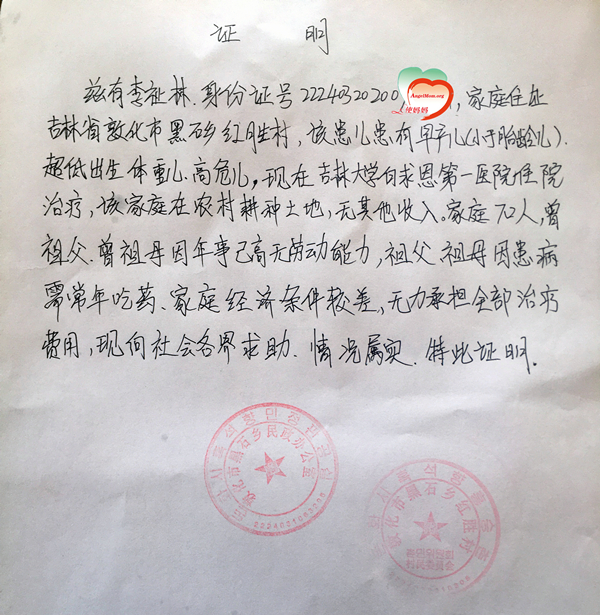 证 明
兹有李祉林.身份证号22240320200
AngelMom.org
使妈妈
,家庭住址
吉林省敦化市黑石乡红胜村,该患儿患有早产儿(小于胎龄儿).
超低出生体重儿.高危儿,现在吉林大学白求恩第一医院住院
治疗,该家庭在农村耕种土地,无其他收入。家庭7口人,曾
祖父.曾祖母因年事已高无劳动能力,祖父.祖母因患病
需常年吃药、家庭经济条件较差,无力承担全部治疗
费用,现向社会各界求助.情况属实.特此证明.
敦化市黑石乡民政办公室
敦化市黑石乡红胜村
村民委员会